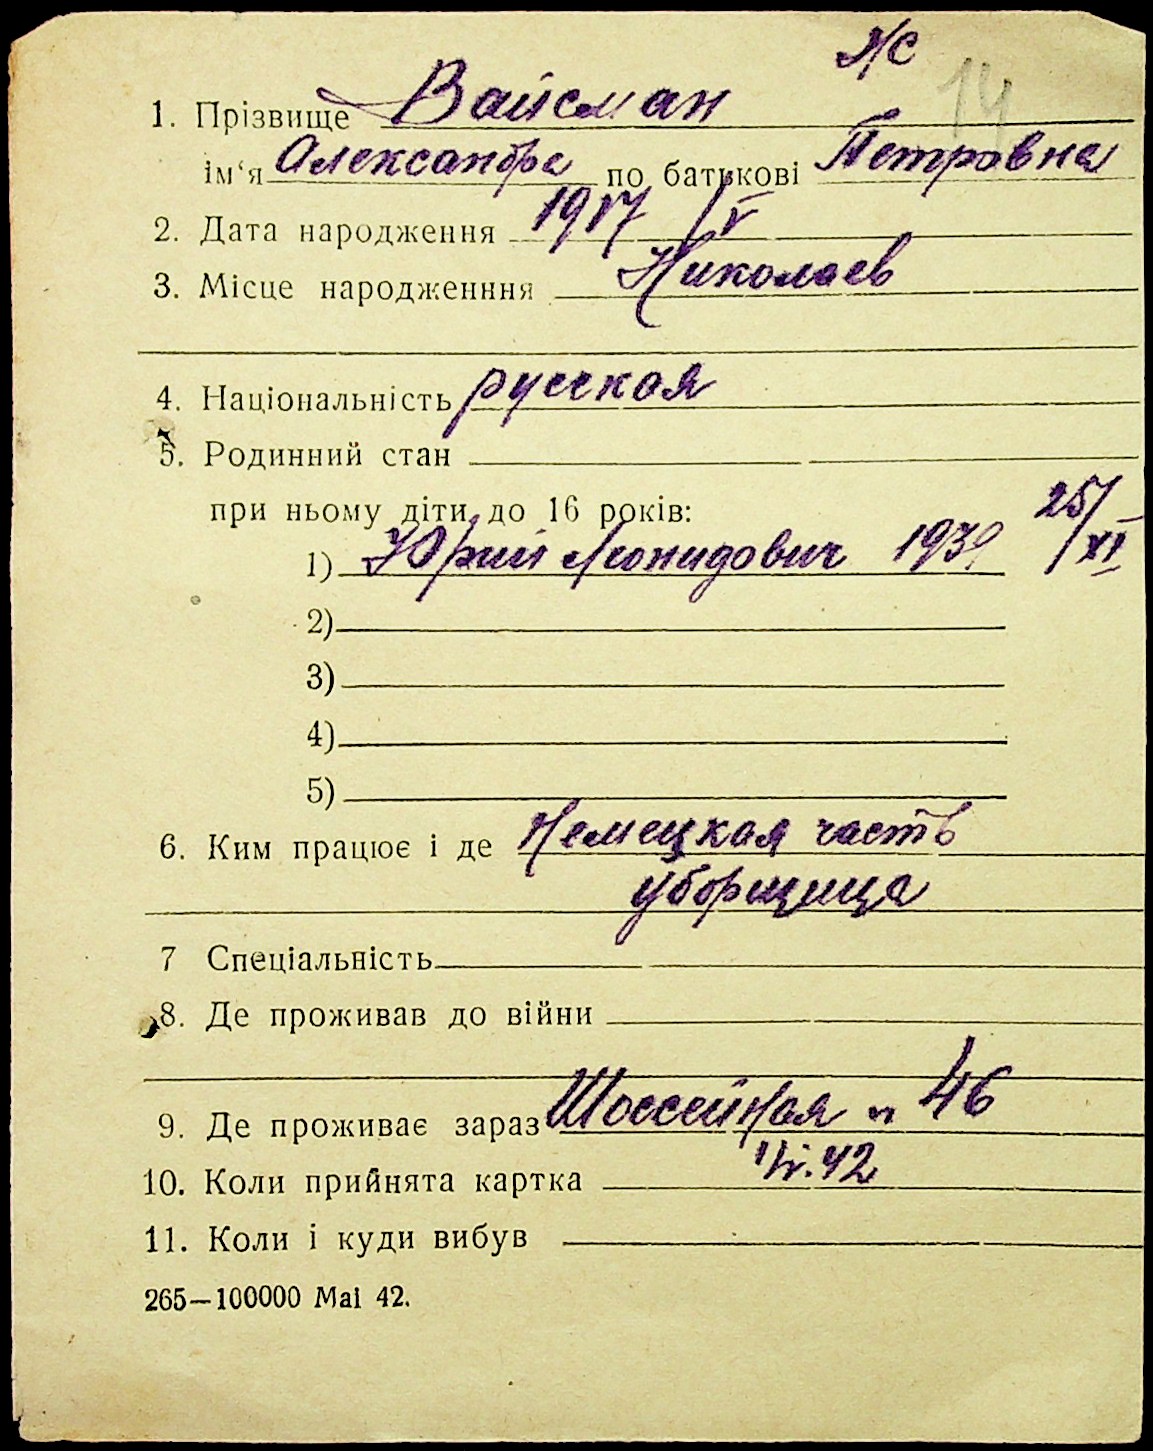 ж/с
14
1. Прізвище Вайсман
ім'я Александра по батькові Петровна
2. Дата народження 1917 /V
3. Місце народженння Николаев
4. Національність русская
5. Родинний стан
при ньому діти до 16 років:
25/XI
1) Юрий Леонидович 1939
2)
3)
4)
5)
6. Ким працює і де Немецкая часть
уборщица
7 Спеціальність
8. Де проживав до війни
9. Де проживає зараз Шоссейная 46
10. Коли прийнята картка 42
11. Коли і куди вибув
265—100000 Маі 42.